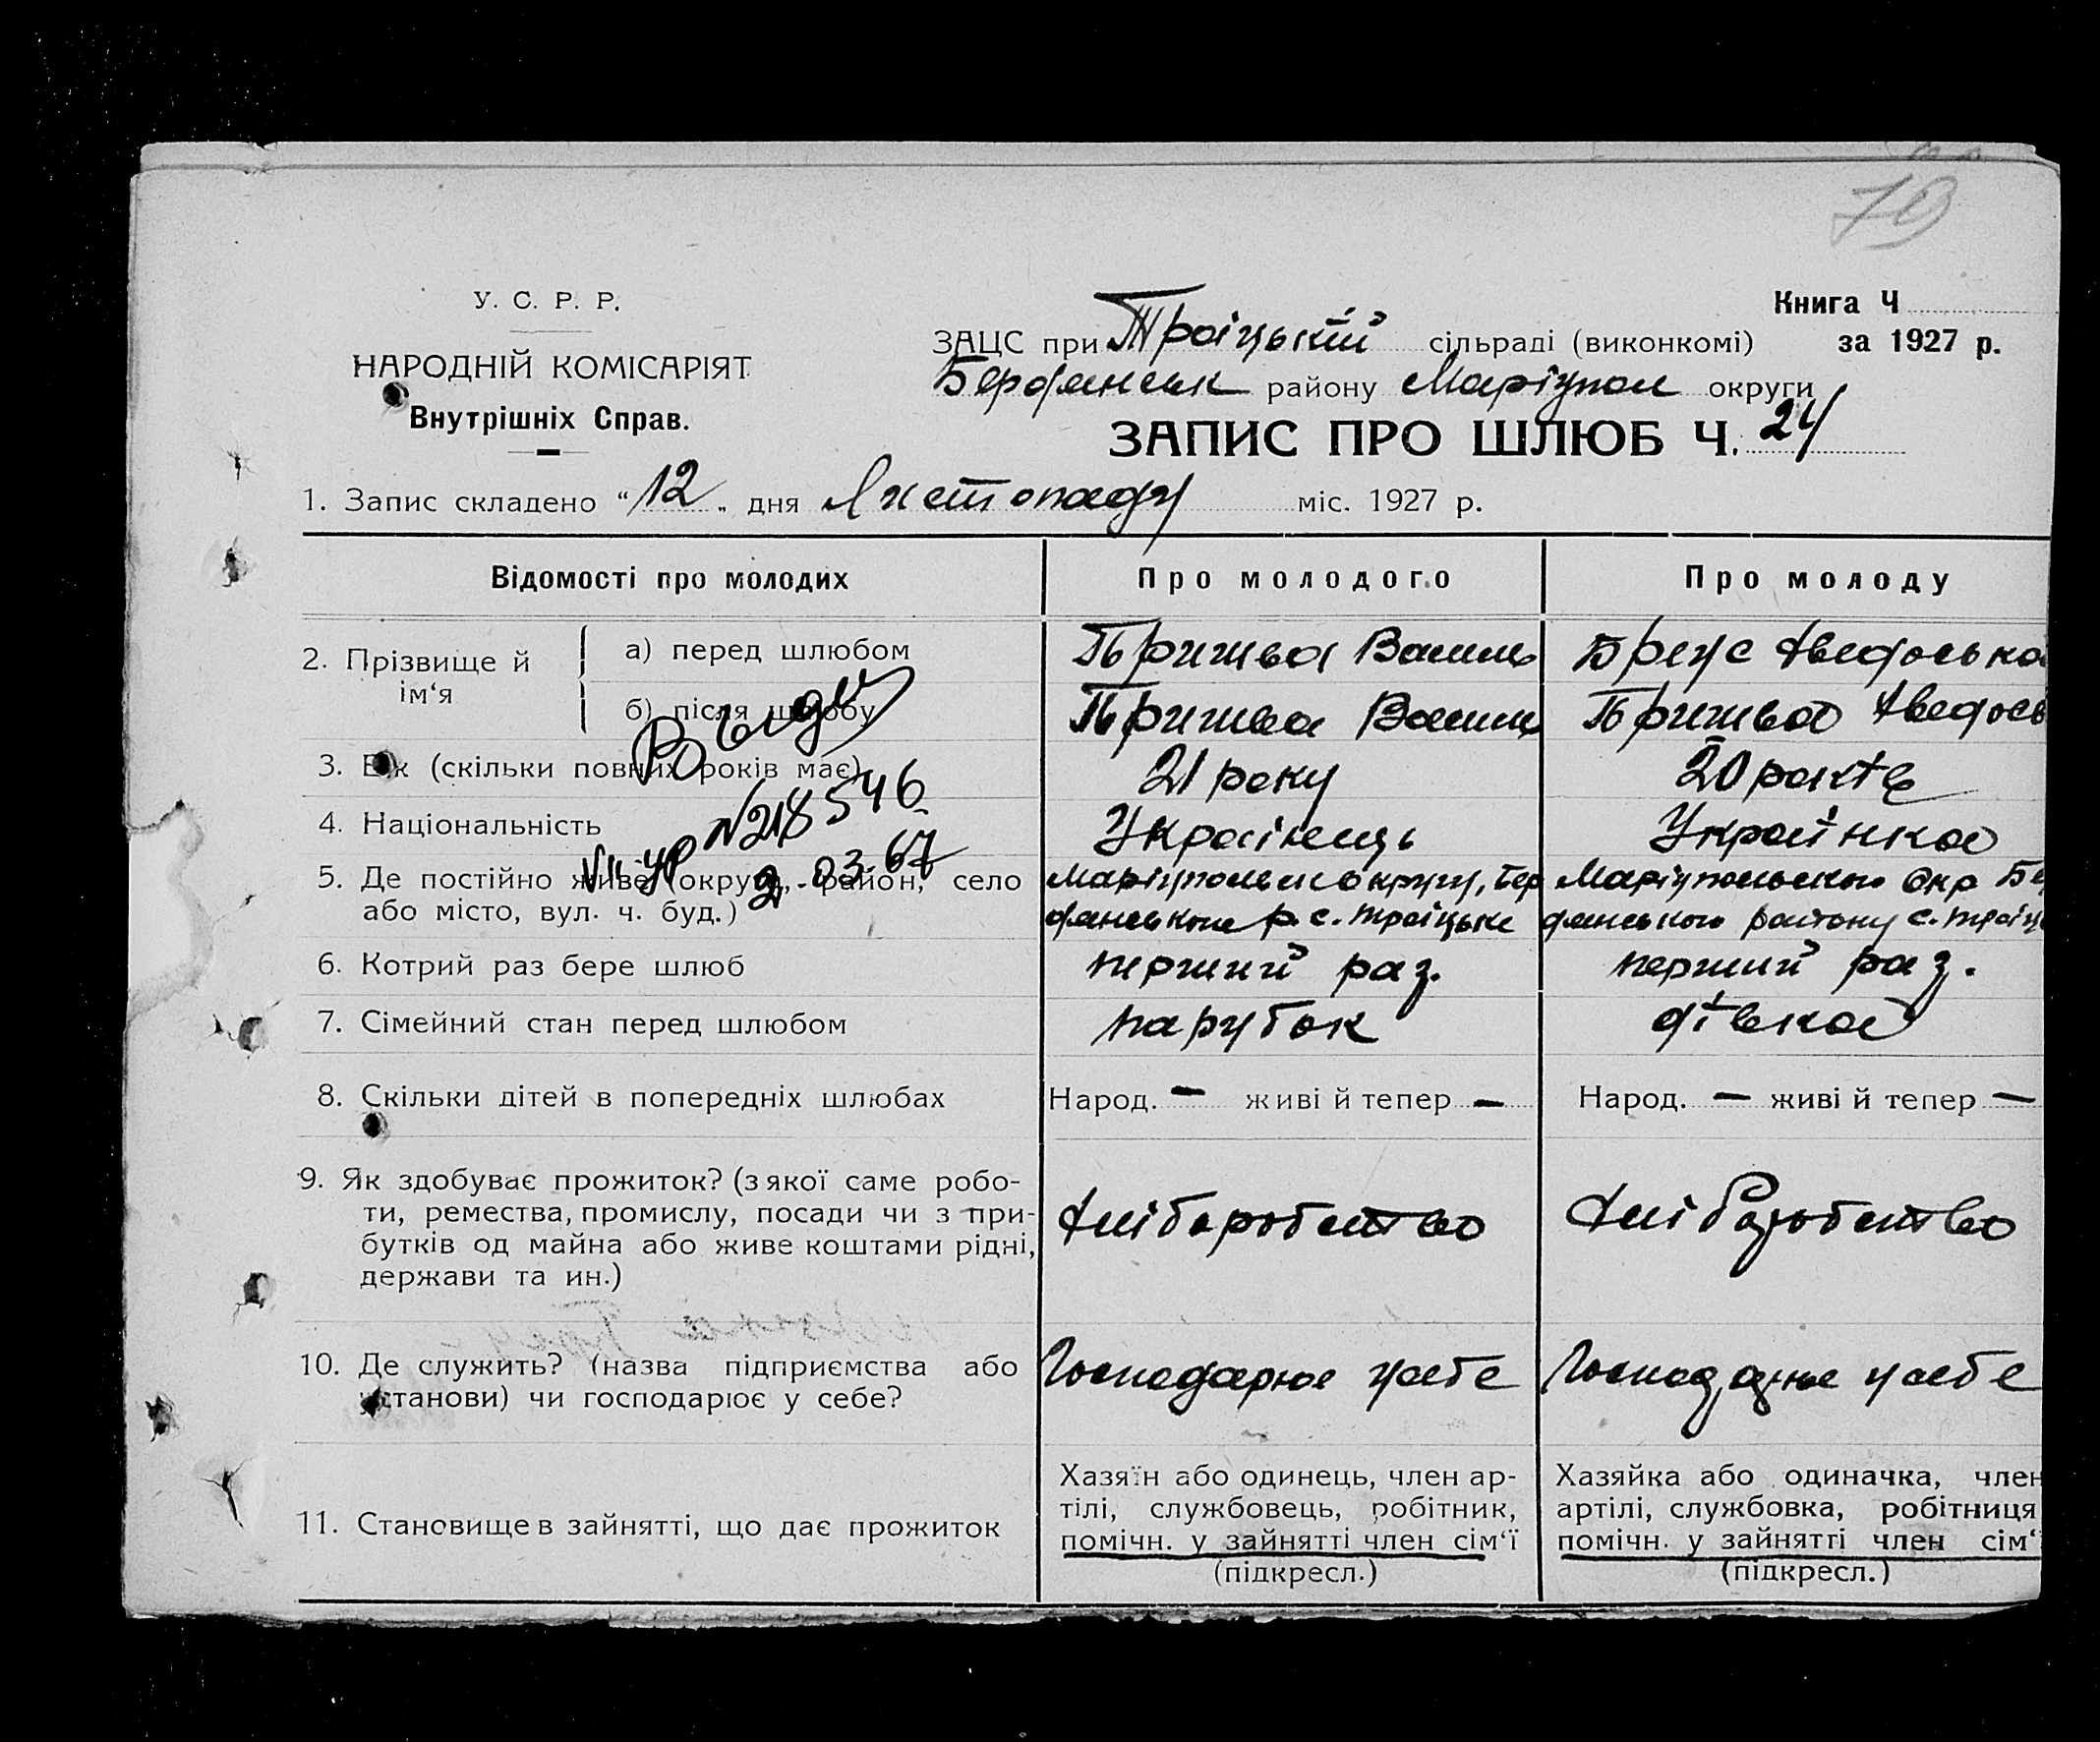 70
У. С. Р. Р.
НАРОДНІЙ КОМІСАРІЯТ
Внутрішніх Справ.
Книга Ч
ЗАЦС при Троіцькій сільраді (виконкомі) за 1927 р.
Бердянськ району Маріупол округи
ЗАПИС ПРО ШЛЮБ Ч. 24
1. Запис складено “12„ дня Листопаду міс. 1927 р.
Відомості про молодих
Про молодого
Про молоду
2. Прізвище й ім‘я
а) перед шлюбом
Василь
Брус Авдоська
б) після шлюбу
Василь
3. Вік (скільки повних років має)
21 року
20 років
№ 218546
4. Національність
Українець
Українка
2.03.67
5. Де постійно живе (округа, район, село
або місто, вул. ч. буд.)
Маріупольськ округу, Бер
дянського р. с. Троіцьке
Маріупольского Окр Бе
дянського району с. Троіц
6. Котрий раз бере шлюб
перший раз.
перший раз.
7. Сімейний стан перед шлюбом
парубок
дівка
8. Скільки дітей в попередніх шлюбах
Народ. — живі й тепер —
Народ. — живі й тепер —
9. Як здобуває прожиток? (з якої саме робо-
ти, ремества, промислу, посади чи з при-
бутків од майна або живе коштами рідні,
держави та ин.)
Хліборобство
Хліборобство
10. Де служить? (назва підприємства або
установи) чи господарює у себе?
Господарює у себе
Господарює у себе
11. Становище в зайнятті, що дає прожиток
Хазяїн або одинець, член ар-
тілі, службовець, робітник,
помічн. у зайнятті член сім‘ї
(підкресл.)
Хазяйка або одиначка, член
артілі, службовка, робітниця
помічн. у зайнятті член сім‘
(підкресл.)